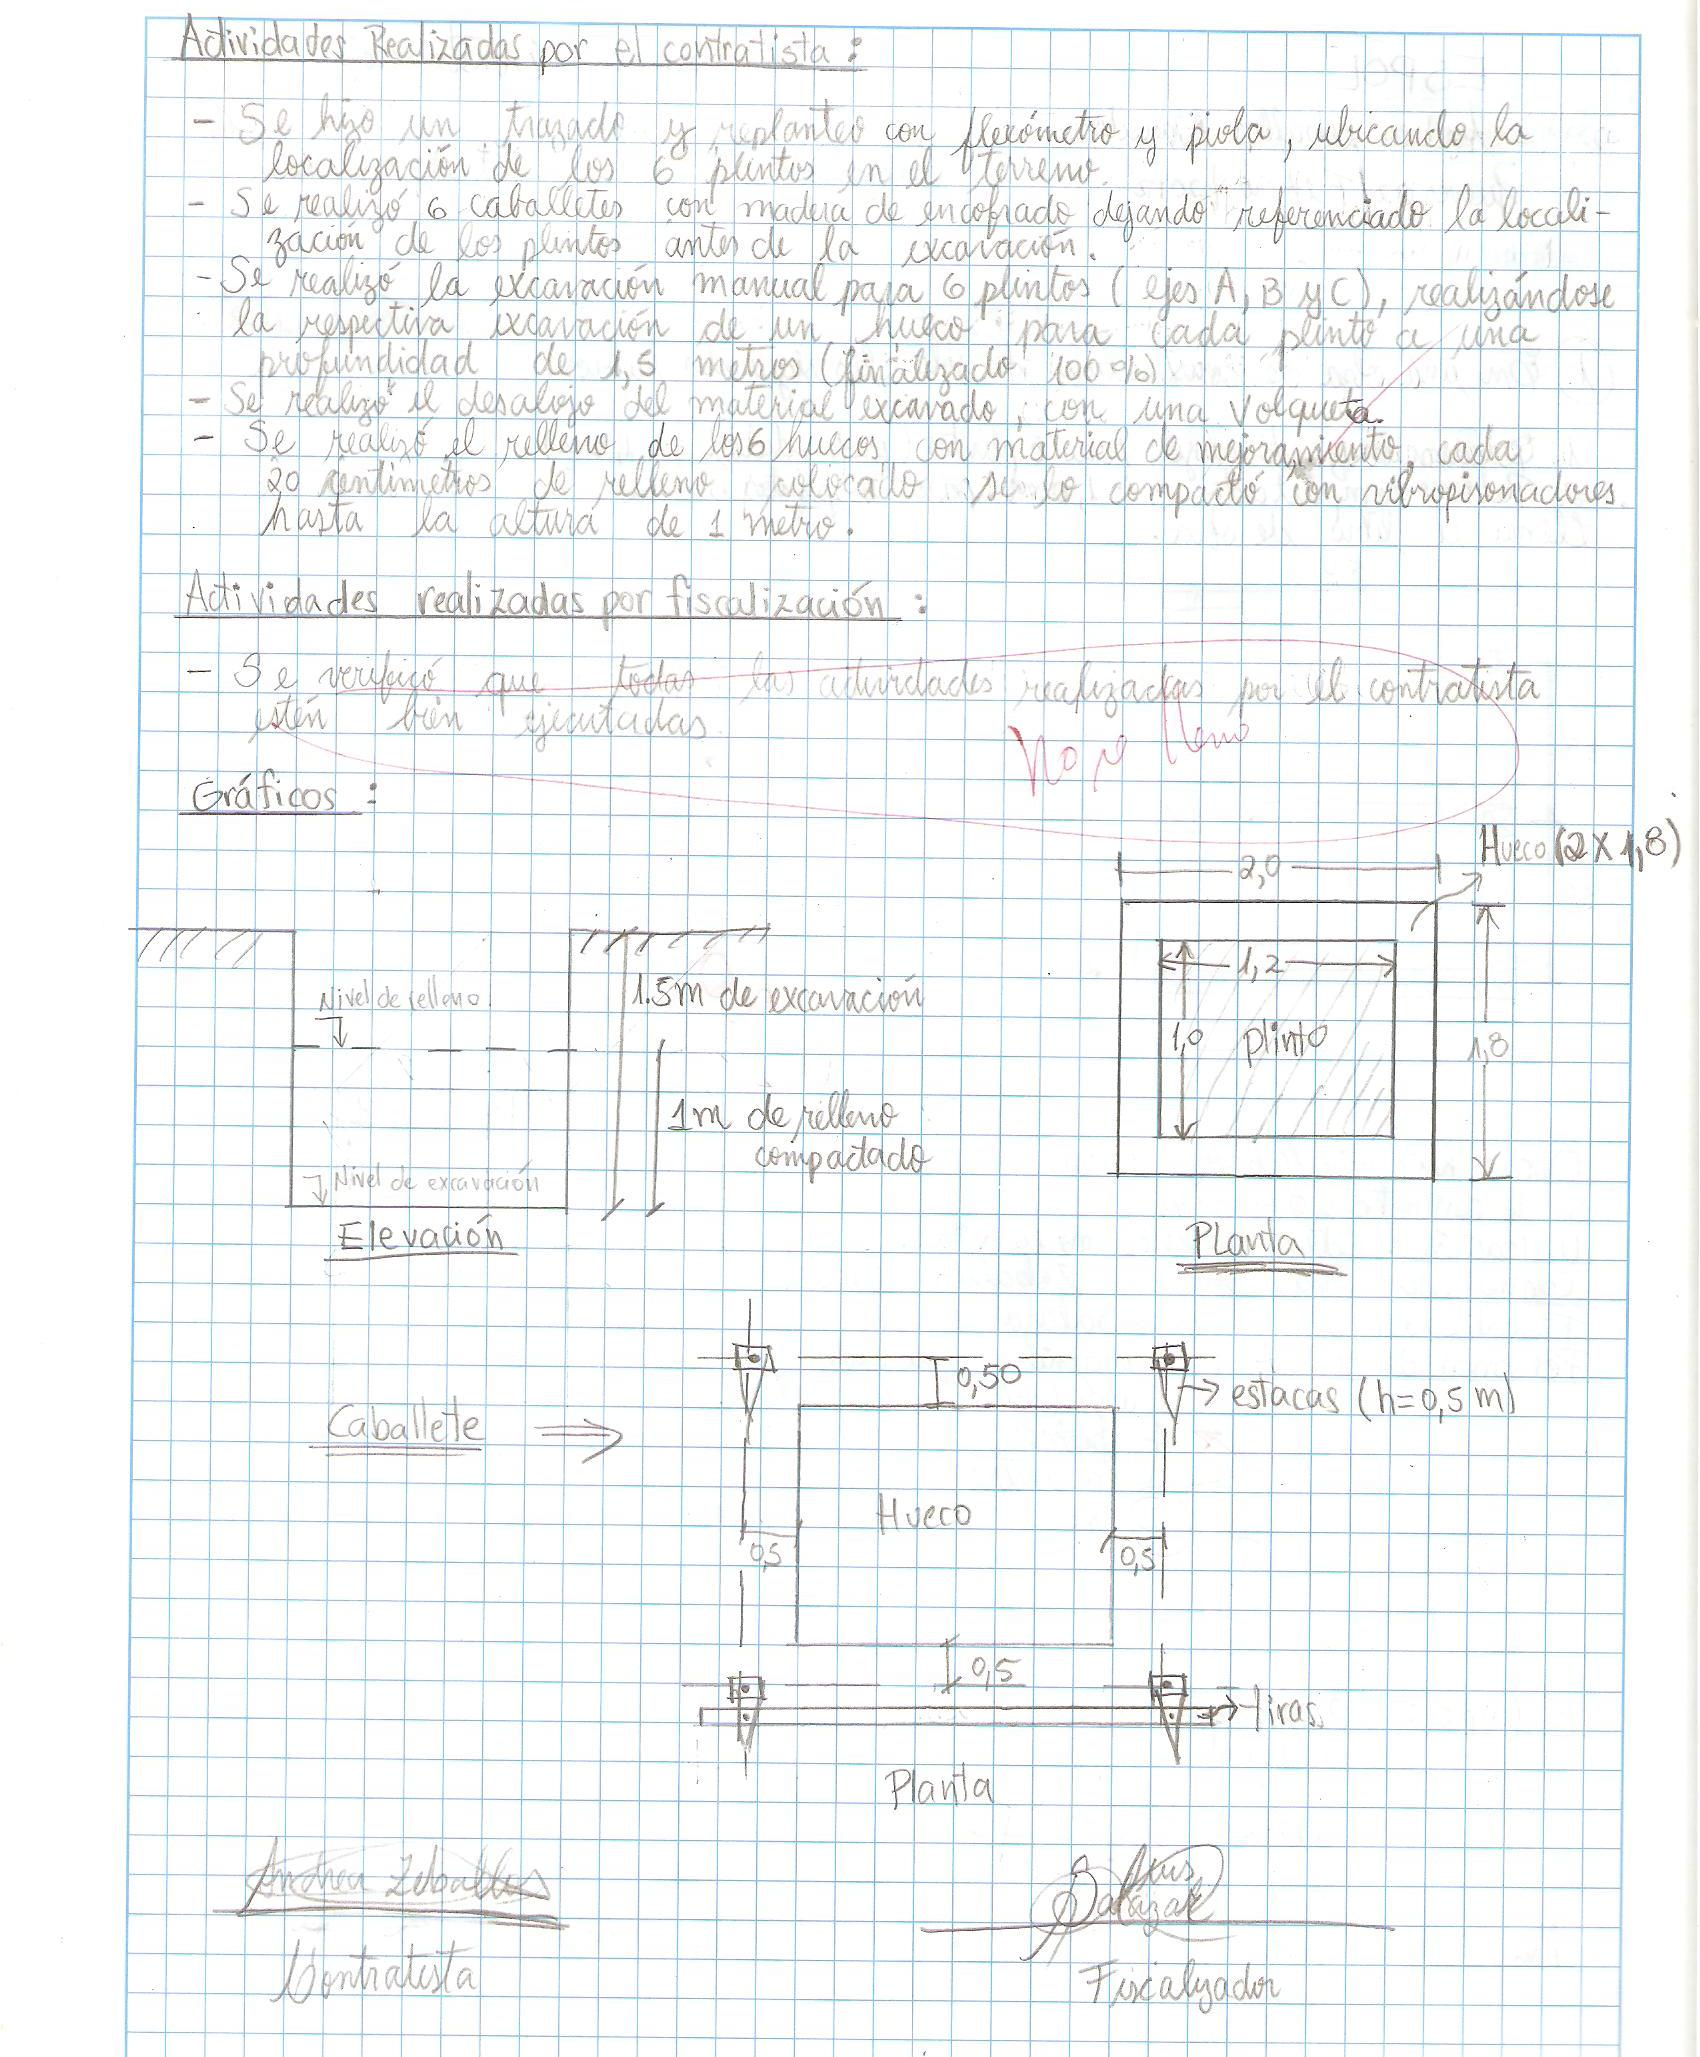 Actividades Realizadas por el contratista:
- Se hizo un trazado y replanteo con flexómetro y piola, ubicando la
localización de los 6 plintos en el terreno.
- Se realizó 6 caballetes con madera de encofrado dejando referenciado la locali-
zación de los plintos antes de la excavación.
- Se realizó la excavación manual para 6 plintos (ejes A, B y C), realizándose
la respectiva excavación de un hueco para cada plinto a una
profundidad de 1,5 metros (finalizado 100%)
- Se realizó el desalojo del material excavado, con una volqueta.
- Se realizó el relleno de los 6 huecos con material de mejoramiento, cada
20 centímetros de relleno colocado se lo compactó con vibropisonadores
hasta la altura de 1 metro.
Actividades realizadas por fiscalización:
- Se verificó que todas las actividades realizadas por el contratista
estén bien ejecutadas.
No
Gráficos:
Hueco (2 X 1,8)
2,0
Nivel de relleno
1.5m de excavación
1,2
1,0
plinto
1,8
1m de relleno
compactado
Nivel de excavación
Elevación
Planta
0,50
estacas (h=0,5m)
Caballete
Hueco
0,5
0,5
0,5
tiras
Planta
Andrea Zeballos
Luis
Salazar
Contratista
Fiscalizador